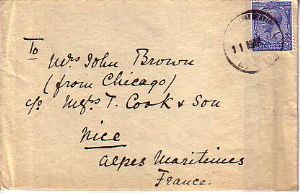 To
Mrs John Brown
(from Chicago)
c/o Messrs T. Cook & Son
Nice
Alpes Maritimes
France.